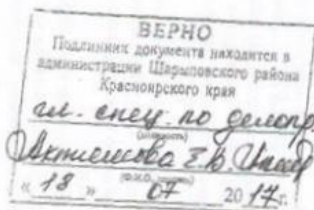 ВЕРНО
Подлинник документа находится в
администрации Шарыповского района
Красноярского края
гл. спец. по делопр
(должность)
Е.В.
(Ф.И.О., подпись)
« 18 » 07 2017г.